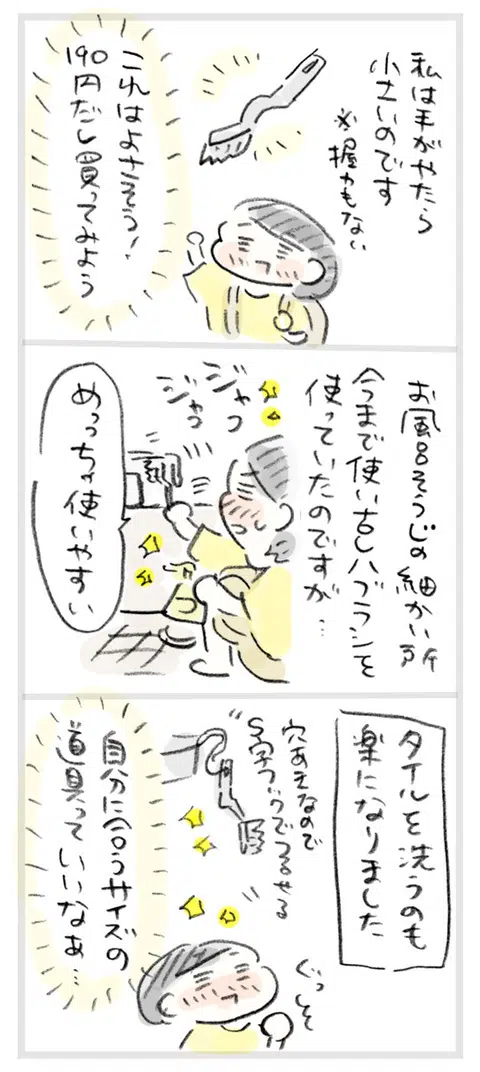 私は手がやたら
小さいのです
※握力もない
これはよさそう!
190円だし買ってみよう
お風呂そうじの細かい所
今まで使い古しハブラシを
使っていたのですが…
ジャコ
ジャコ
めっちゃ使いやすい
タイルを洗うのも
楽になりました
穴あきなので
S字フックでつるせる
ぐっしょ
自分に合うサイズの
道具っていいなぁ…